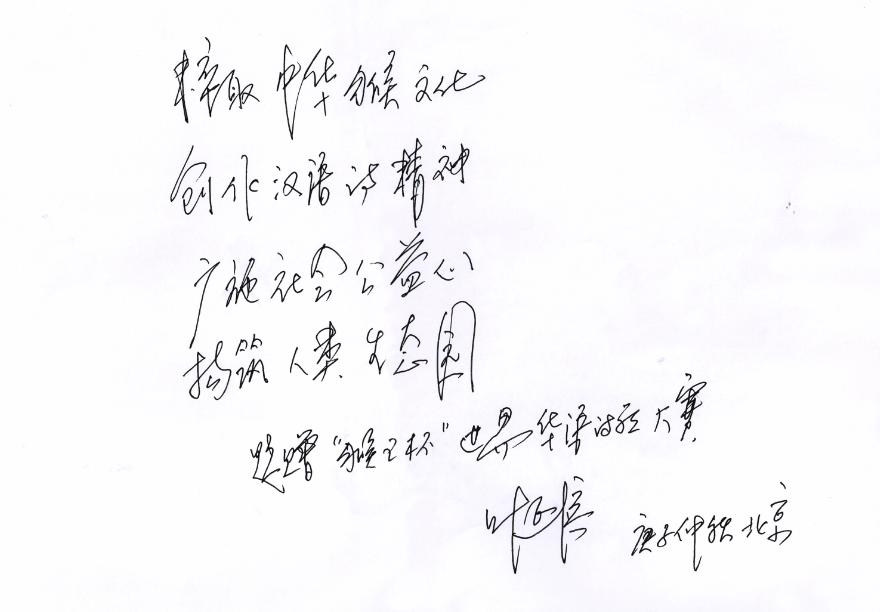 萃取中华猴文化
创作汉语诗精神
广施社会公益心
构筑人类生态园
题赠“猴王杯”世界华语诗歌大赛
叶延滨 庚子仲秋北京